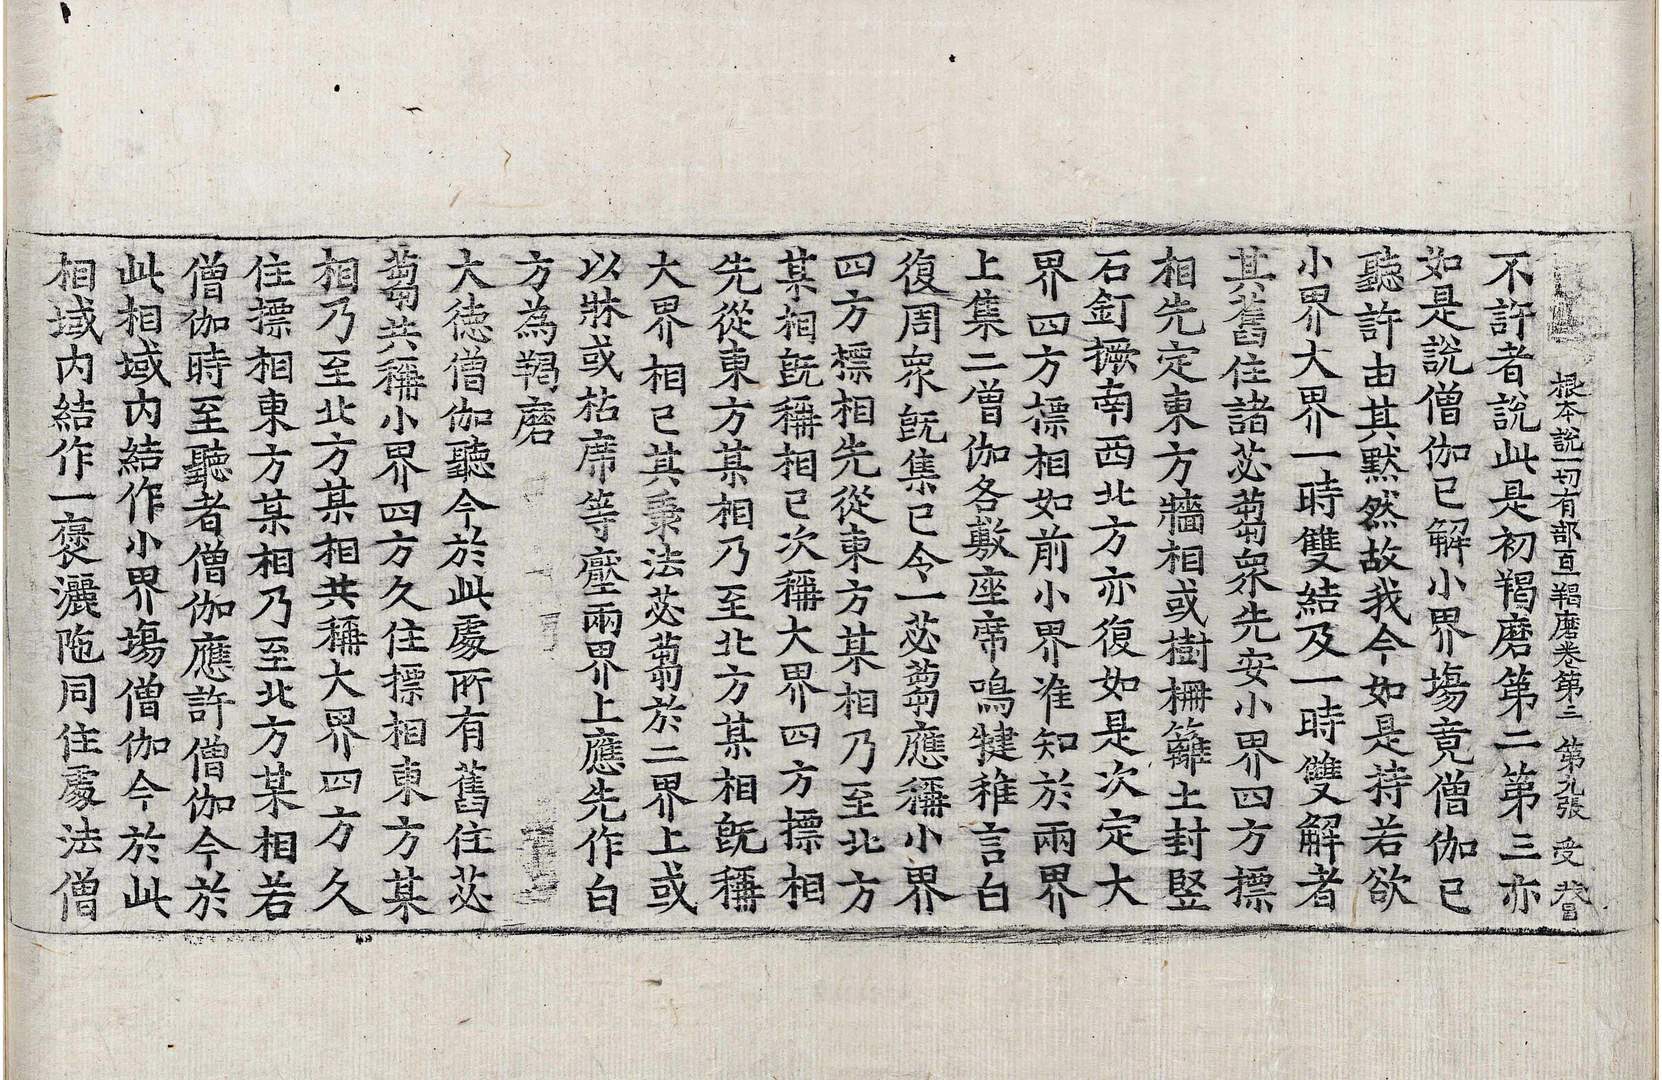 根本說一切有部百一羯磨卷第三 第九張 受
不許者說此是初羯磨第二第三亦
如是說僧伽已解小界塲竟僧伽已
聽許由其黙然故我今如是持若欲
小界大界一時雙結及一時雙解者
其舊住諸苾蒭衆先安小界四方摽
相先定東方牆相或樹柵籬土封竪
石釘撅南西北方亦復如是次定大
界四方摽相如前小界准知於兩界
上集二僧伽各敷座席鳴揵稚言白
復周衆旣集已令一苾蒭應稱小界
四方摽相先從東方某相乃至北方
某相旣稱相已次稱大界四方摽相
先從東方某相乃至北方某相旣稱
大界相已其秉法苾蒭於二界上或
以牀或枯席等壓兩界上應先作白
方為羯磨
大徳僧伽聽今於此處所有舊住苾
蒭共稱小界四方久住摽相東方某
相乃至北方某相共稱大界四方久
住摽相東方某相乃至北方某相若
僧伽時至聽者僧伽應許僧伽今於
此相域內結作小界塲僧伽今於此
相域內結作一褒灑陁同住處法僧